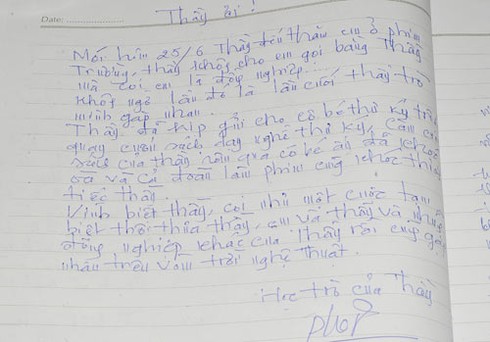 Date:
Thầy ơi!
Mới hôm 25/6 Thầy đến thăm em ở phim
Trường, thầy không cho em gọi bằng Thầy
mà coi em là đồng nghiệp.
Không ngờ lần đó là lần cuối thầy trò
mình gặp nhau.
Thầy đã kịp gửi cho cô bé thư ký trường
quay cuốn sách dạy nghề thư ký, cầm cuốn
sách của thầy hôm qua cô bé ấy đã khóc
oà và cả đoàn làm phim cũng khóc thương
tiếc thầy.
Vĩnh biệt thầy, coi như một cuộc tạm
biệt thôi thưa thầy, em và thầy và những
đồng nghiệp khác của Thầy rồi cũng gặp
nhau trên vòm trời nghệ thuật.
Học trò của Thầy